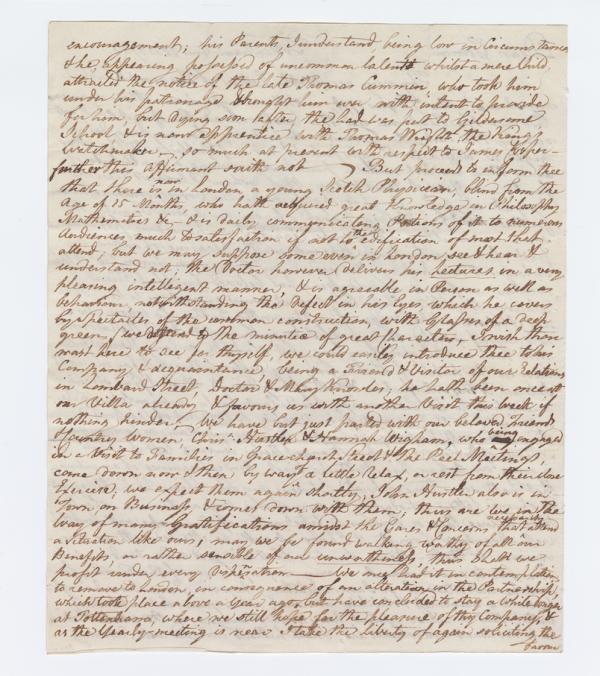 encouragement; his Parents, I understand, being low in Circumstances
& he, appearing possess'd of uncommon talents whilst a mere Child,
attracted the notice of the late Thomas Cumming, who took him
under his patronage & brought him up with intent to provide
for him, but dying soon after the had was put to Gildersome
School & is now apprentice with Thomas Wright, the Kings
Watchmaker — so much at present with respect to James
further this Affirmant saith not — But proceed to inform thee
that there is now in London a young Scotch Physician, blind from the
Age of 15 Months, who hath acquired great Knowledge in Philosophy
Mathematics &c — & is daily communicating Portions of it to numerous
Audiences much to satisfaction if not to the edification of most that
attend, but we may suppose some even in London, see & hear &
understand not; the Doctor however delivers his Lectures in a very
pleasing intelligent manner, & is agreeable in Person as well as
behaviour notwithstanding the defect in his Eyes which he covers
by Spectacles of the common construction, with Glasses of a deep
green, (we attend to the minutiæ of great characters, I wish thou
wast here to see for thyself, we could easily introduce thee to his
Company & Acquaintance, being a Friend & Visitor of our Relations
in Lombard Street, Doctor & Mary Knowles, he hath been once at
our Villa already & favours us with another Visit this Week if
nothing hinder — We have but just parted with our beloved Friends
& Country Women, Chris: Hustler & Hannah Wigham, who being engaged
in a Visit to Families in Gracechurch Street & the Peel Meetings,
come down now & then by way of a little Relax, or rest from their close
Exercise; we expect them again shortly, John Hustler also is in
Town, on Business, & comes down with them; thus are we in the
way of many Gratifications amidst the Cares & Concerns that attend
a situation like ours; may we be found walking worthy of all our
Benefits, or rather sensible of our unworthiness, thus shall we
profit under every Dispensation — We once had it in contemplation
to remove to London, in consequence of an alteration in the Partnership,
which took place above a Year ago, but have concluded to stay a while longer
at Tottenham, where we still hope for the pleasure of thy Company, &
as the Yearly-meeting is near I take the liberty of again soliciting the
favour